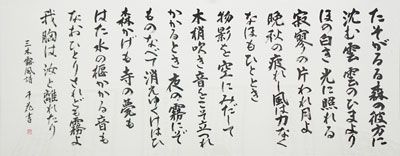 たそがるる森の彼方に
沈む雲雲のひまより
ほの白き光に照れる
寂寥の片われ月よ
晩秋の疲れし風は力なく
なほもひととき
物影を空にみだして
木梢吹き音をこそ立つれ
かかるとき夜の霧にて
ものなべて消えゆくけはひ
森かげも寺の甍も
はた水の樋かかる音も
なおひとりされども霧よ
我胸は汝と離れたり
三木露風詩
書